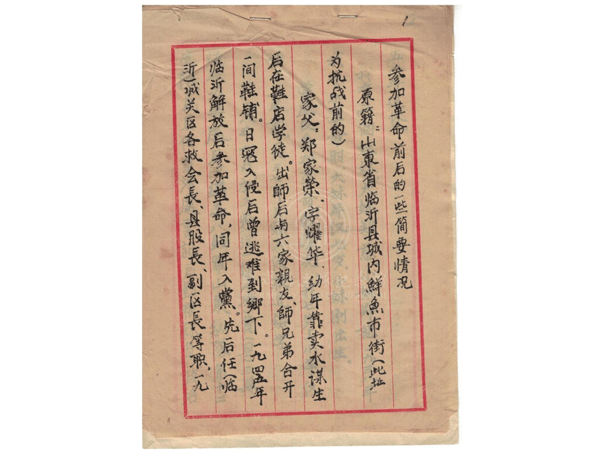 参加革命前后的些简要情况
原籍：山東省临沂县城内鮮魚市街（此址
为抗战前的）
家父。郑家榮、字燿华、幼年靠卖水谋生
后在鞋店学徒。出師后与六家親友、師兄弟合开
一间鞋铺。日冦入侵后曾逃难到鄉下。一九四五年
临沂解放后参加革命，同年入黨。先后任（临
沂）城关区各救会長、县股長、副区長等职、一九